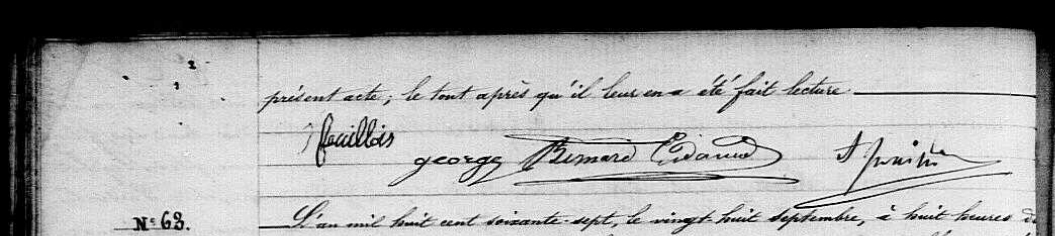 présent acte, le tout après qu'il leur en a été fait lecture
feuillois
georges Bernard
N° 63.
L'an mil huit cent soixante-sept, le vingt huit septembre, à huit heures d